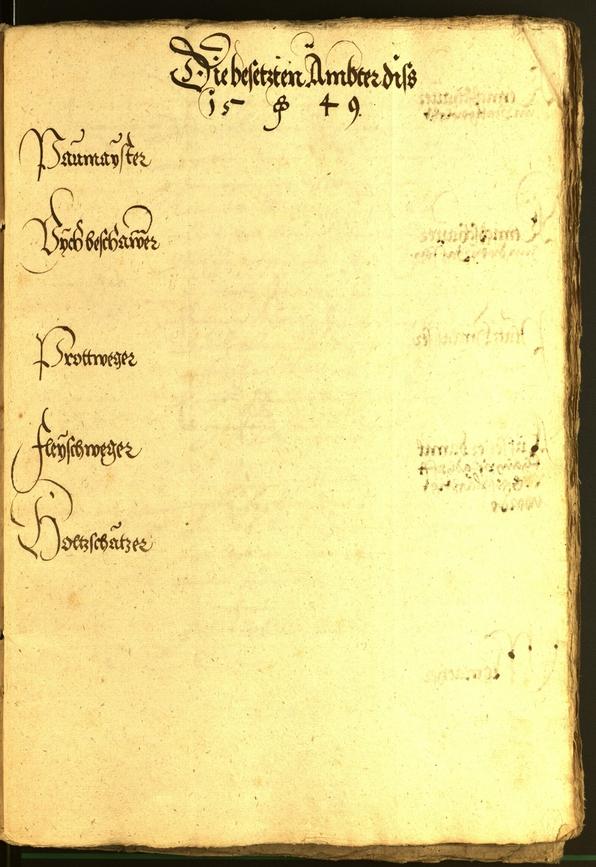 Die besetzten Ämbter diss
15 49.
Paumayster
Vÿchbeschawer
Prottweger
Fleÿschweger
Holtzschätzer